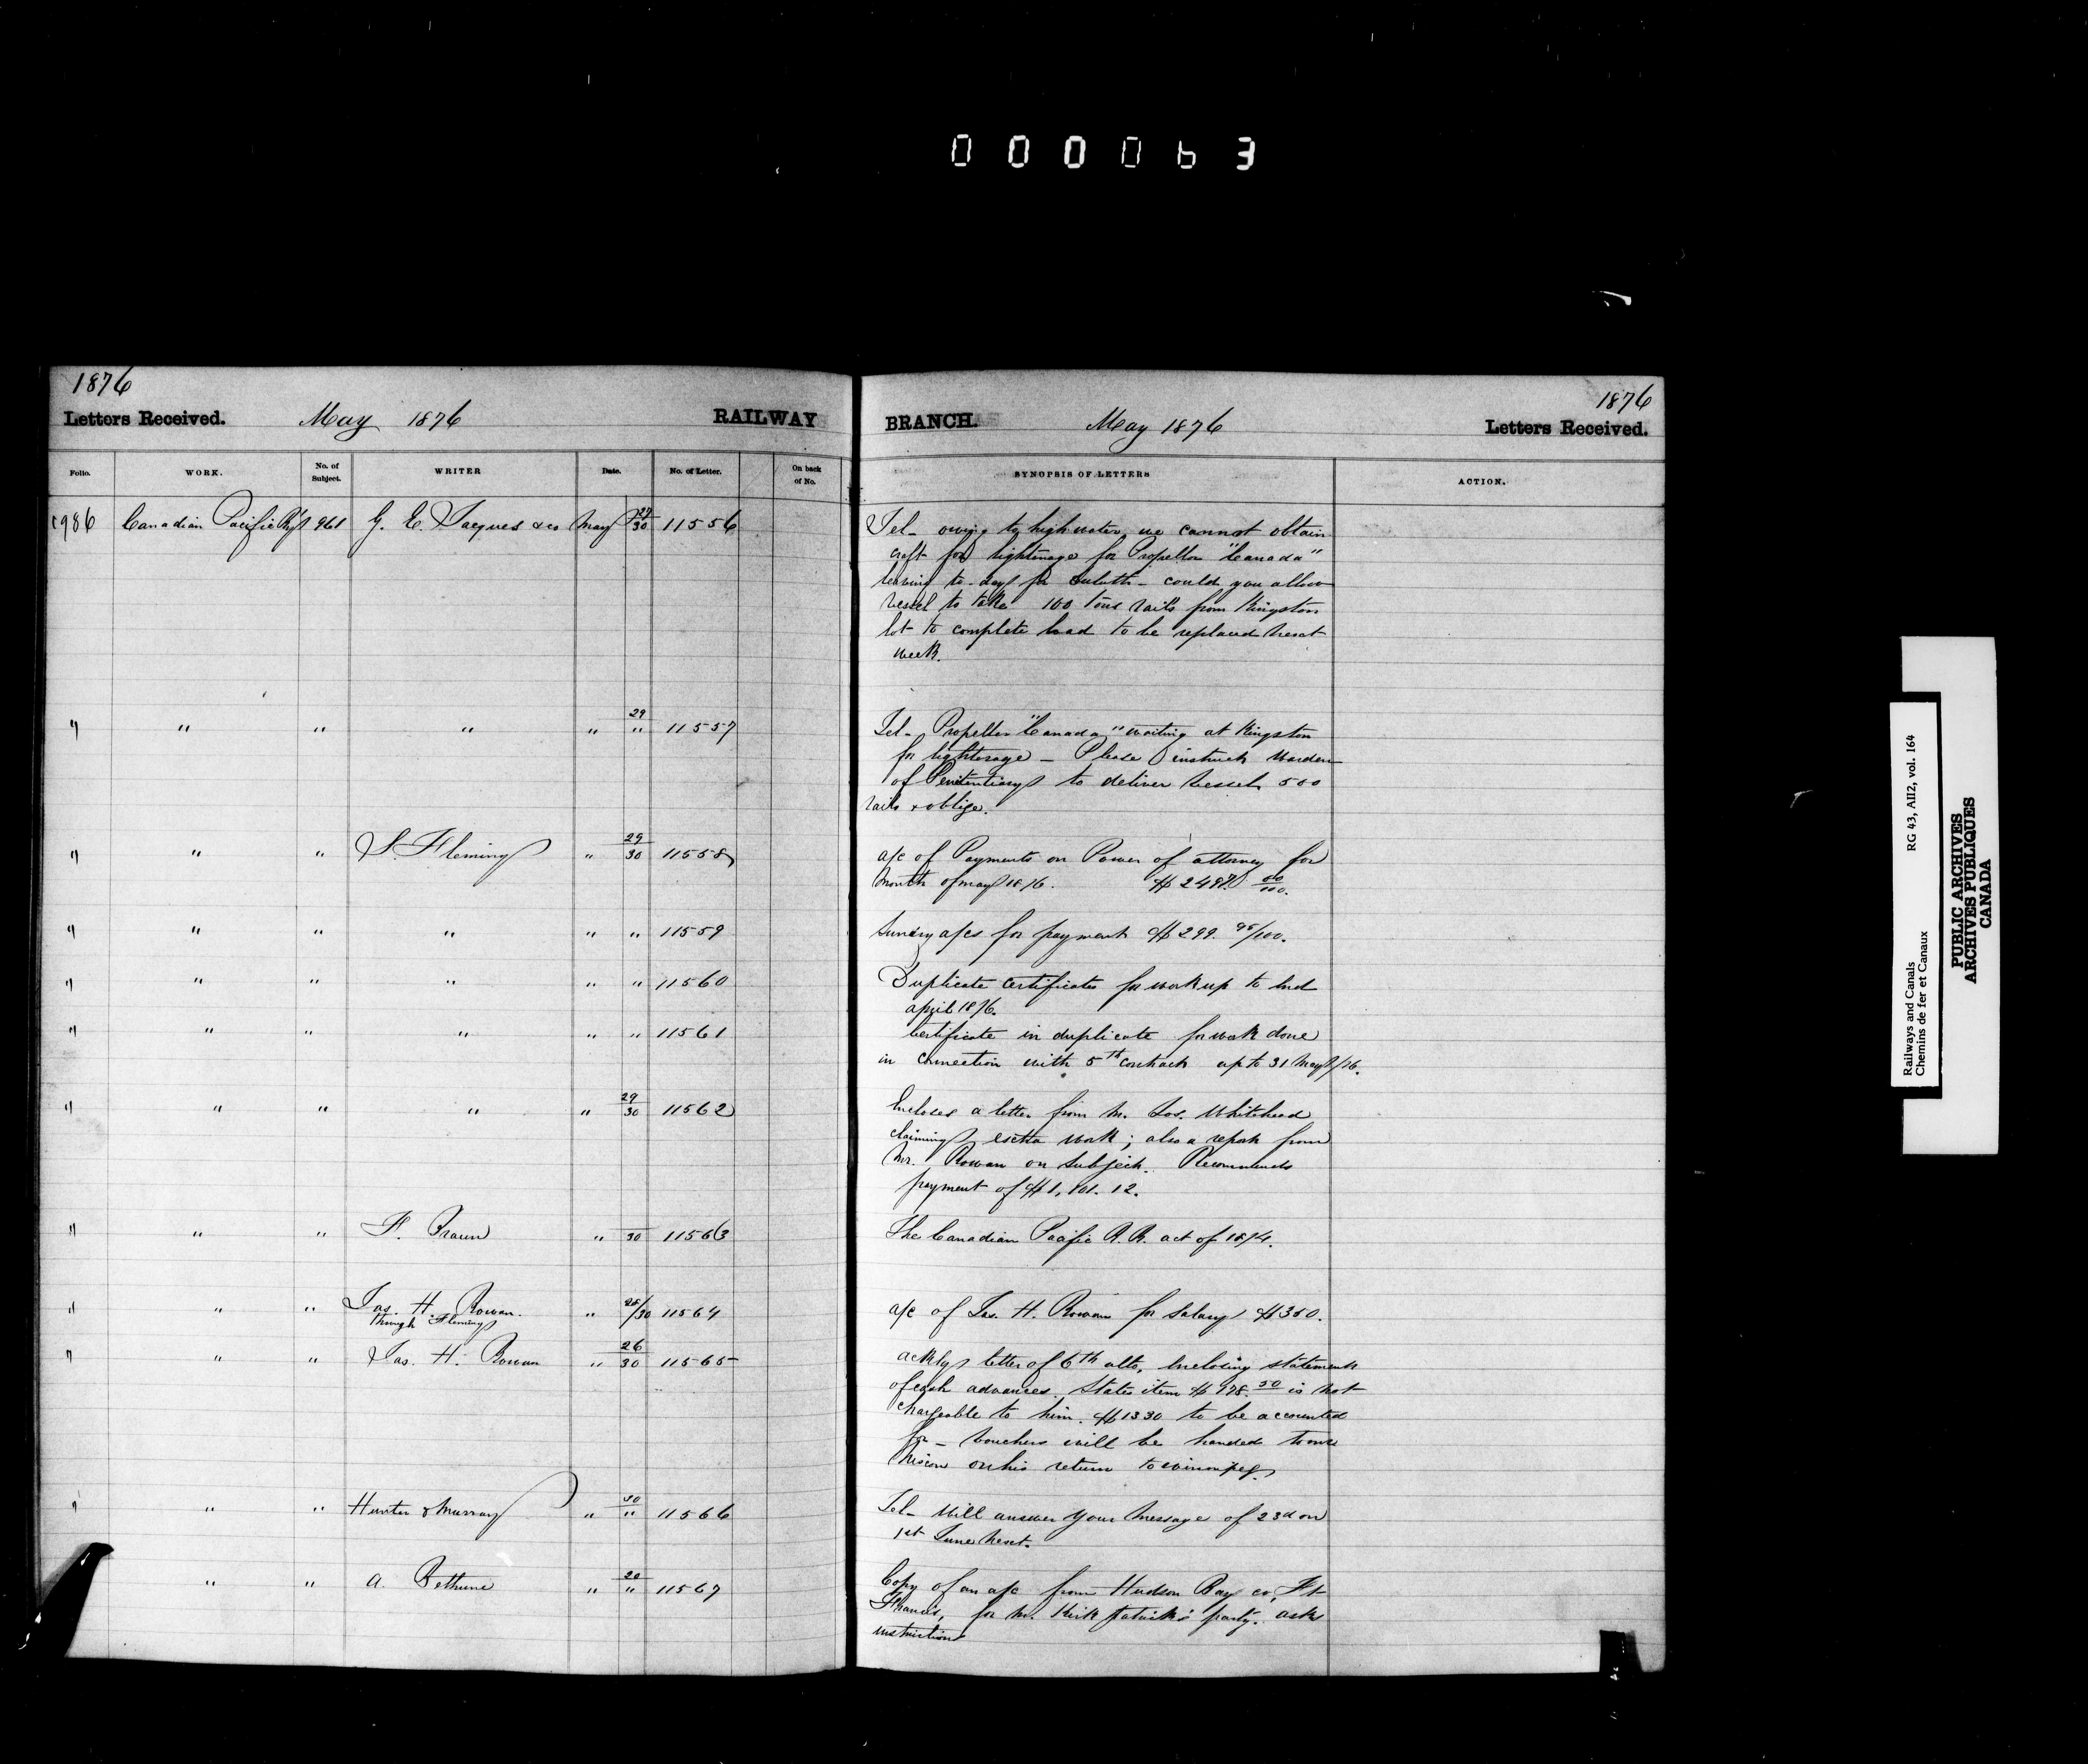 000063
1876
Letters Received. May 1876 RAILWAY
Folio. WORK. No. of Subject. WRITER Date. No. of Letter. On back of No.
1986 Canadian Pacific Ry 961 G. E. Jacques & co May 29/30 11556
" " " " " 29/" 11557
" " " S. Fleming " 29/30 11558
" " " " " " 11559
" " " " " " 11560
" " " " " " 11561
" " " " " 29/30 11562
" " " F. Braun " 30 11563
" " " Jas. H. Rowan. " 28/30 11564
through Fleming
" " " Jas. H. Rowan " 26/30 11565
" " " Hunter & Murray " 30/" 11566
" " A. Bethune " 20/" 11567
1876
BRANCH. May 1876 Letters Received.
SYNOPSIS OF LETTERS ACTION.
Tel- owing to high water we cannot obtain
craft for lighterage for Propeller "Canada"
leaving to-day for Duluth - could you allow
vessel to take 100 tons rails from Kingston
lot to complete load to be replaced next
week.
Tel- Propeller "Canada" waiting at Kingston
for lighterage - Please instruct Warden
of Penitentiary to deliver vessel 500
rails & oblige.
a/c of Payments on Power of attorney for
month of may 1876. $2487. 00/100.
Sundry a/cs for payment $299. 95/100.
Duplicate Certificates for work up to end
april 1876.
Certificate in duplicate for work done
in connection with 5th contract up to 31 May/76.
Encloses a letter from Mr. Jos. Whitehead
claiming extra work; also a report from
Mr. Rowan on subject. Recommends
payment of $1,101.12.
The Canadian Pacific R.R. act of 1874.
a/c of Jas. H. Rowan for Salary $350.
ackgs letter of 6th ulto, enclosing statement
of cash advances. States item $178.50 is not
chargeable to him. $1330 to be accounted
for - vouchers will be handed
Nixon on his return to Winnipeg
Tel- Will answer your message of 23d on
1st June next.
Copy of an a/c from Hudson Bay co, Ft
Francis, for Mr. Kirkpatrick's party. asks
instructions
Railways and Canals RG 43, AII2, vol. 164
Chemins de fer et Canaux
PUBLIC ARCHIVES
ARCHIVES PUBLIQUES
CANADA